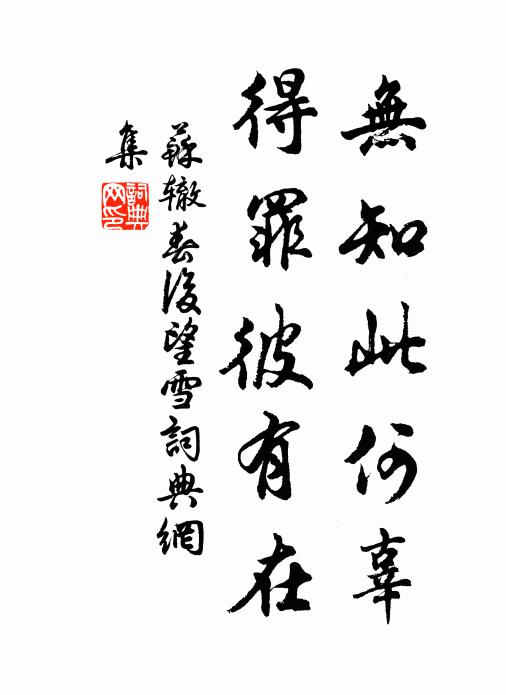 無知此何辜
得罪彼有在
蘇辙春後望雪詞典網
集
詞典网印